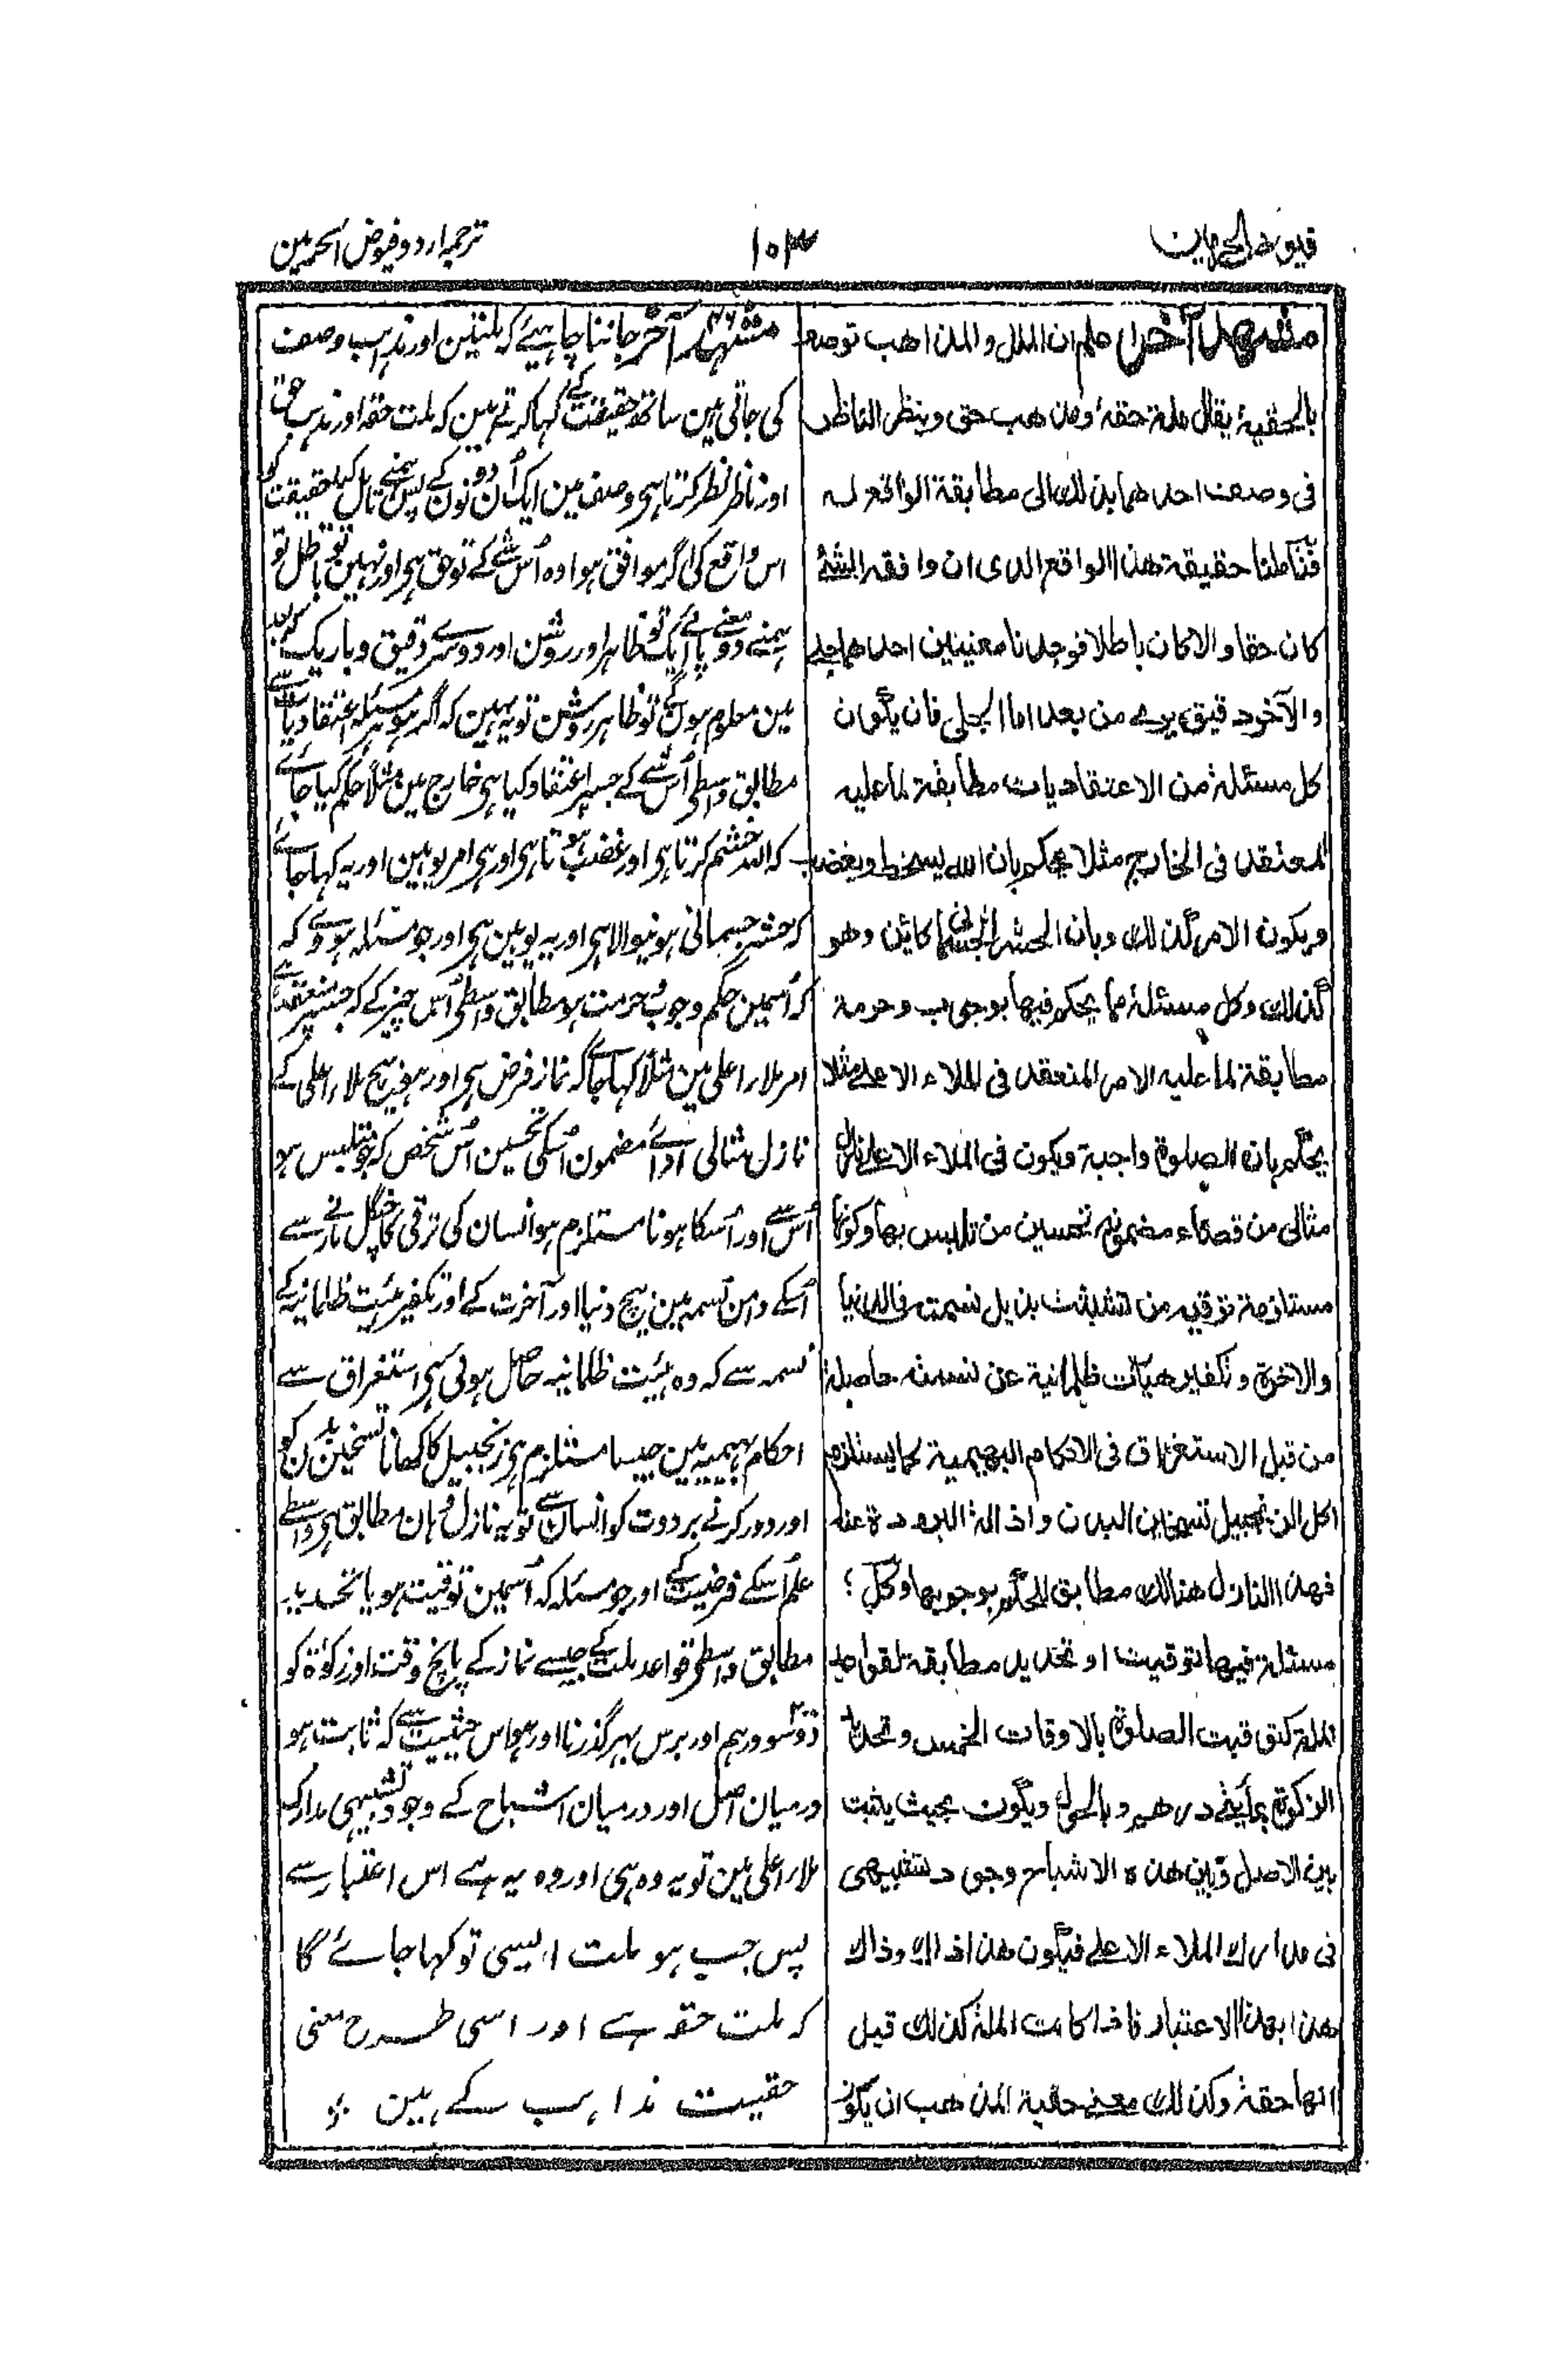 فیوض الحرمین
۱۰۳
ترجمہ اردو فیوض الحرمین
مشهد آخر اعلم ان الملل والمذاهب توصف
بالحقية يقال ملة حقة ومذهب حق وينظر الناظر
فى وصف احدهما بذلك الى مطابقة الواقع له
فتأملنا حقيقة هذا الواقع الذى ان وافقه الشئ
كان حقا والا كان باطلا فوجدنا معنيين احدهما جلى
والآخر دقيق يرى من بعد اما الجلى فان يكون
كل مسئلة من الاعتقاديات مطابقة لما عليه
المعتقد فى الخارج مثلا يحكم بان الله يسخط ويغضب
ويكون الامر كذلك وبان الحشر الجسمانى كائن وهو
كذلك وكل مسئلة مما يحكم فيها بوجوب وحرمة
مطابقة لما عليه الامر المنعقد فى الملاء الاعلى مثلا
يحكم بان الصلوة واجبة ويكون فى الملاء الاعلى نازل
مثالى من قضاء مضمونه تحسين من تلبس بها وكونها
مستلزمة ترقيه من تشبثت بذيل نسمته فى الدنيا
والاخرة وتكفير هيآت ظلمانية عن نسمته حاصلة
من قبل الاستغراق فى الاحكام البهيمية كما يستلزم
اكل الزنجبيل تسخين البدن وازالة البرودة عنه
فهذا النازل هنالك مطابق للحكم بوجوبها وكل
مسئلة فيها توقيت او تحديد مطابقة لقواعد
الملة كتوقيت الصلوة بالاوقات الخمس وتحديد
الزكوة بمأيتى درهم وبالحول ويكون بحيث يثبت
بين الاصل وبين هذه الاشباح وجود تشبيهى
فى مدارك الملاء الاعلى فيكون هذا ذاك وذاك
هذا بهذا الاعتبار فاذا كانت الملة كذلك قيل
انها حقة وكذلك معنى حقية المذهب ان يكون
مشہد آخر جاننا چاہیئے کہ ملتین اور مذہب وصف
کی جاتی ہین ساتھ حقیقت کے کہا کرتے ہین کہ ملت حقہ اور مذہب حق
اور ناظر نظر کرتا ہی وصف مین ایک اُن دونون کے پس ہمنے تامل کیا حقیقت کو
اس واقع کی اگر موافق ہوا وہ اُس شے کے تو حق ہی اور نہین تو باطل تو
ہمنے دو معنے پائے ایک تو ظاہر اور روشن اور دوسرے دقیق و باریک کہ بعد
مین معلوم ہونگے تو ظاہر روشن تو یہ ہین کہ اگر ہو ہر مسئلہ اعتقادیات سے
مطابق واسطے اُس شے کے جسپر اعتقاد کیا ہی خارج مین مثلا حکم کیا جائے
کہ اللہ خشم کرتا ہی اور غضب ہوتا ہی اور ہی امر یوہین اور یہ کہا جائے
کہ حشر جسمانی ہونیوالا ہی اور یہ یوہین ہی اور جو مسئلہ ہووے کہ
کہ اُسمین حکم وجوب و حرمت ہو مطابق واسطے اُس چیز کے کہ جسپر منعقد ہے
امر ملاء اعلی مین مثلاً کہا جائے گا کہ نماز فرض ہی اور ہو بیچ ملاء اعلی کے
نازل مثالی اوائے مضمون اُسکی تحسین اُس شخص کہ جو متلبس ہو
اُس سے اور اُسکا ہونا مستلزم ہو انسان کی ترقی کا چنگل مارنے سے
اُسکے دامن نسمہ مین بیچ دنیا اور آخرت کے اور تکفیر ہیئت ظلمانیہ کے
نسمہ سے کہ وہ ہیئت ظلمانیہ حاصل ہوئی ہی استغراق سے
احکام بہیمیہ مین جیسا مستلزم ہی زنجبیل کا کھانا تسخین بدن کو
اور دور کرنے برودت کو انسان سے تو یہ نازل وہان مطابق ہی واسطے
علم اُسکے فرضیت کے اور جو مسئلہ کہ اُسمین توقیت ہو یا تحدید
مطابق واسطے قواعد ملت کے جیسے نماز کے پانچ وقت اور زکوٰۃ کو
دو سو درہم اور برس بہر گذرنا اور ہو اس حیثیت سے کہ ثابت ہو
درمیان اصل اور درمیان اشباح کے وجود تشبیہی مدارک
ملاء اعلی مین تو یہ وہ ہی اور وہ یہ ہے اس اعتبار سے
پس جب ہو ملت ایسی تو کہا جائے گا
کہ ملت حقہ ہے اور اسی طرح معنی
حقیت مذاہب کے ہین